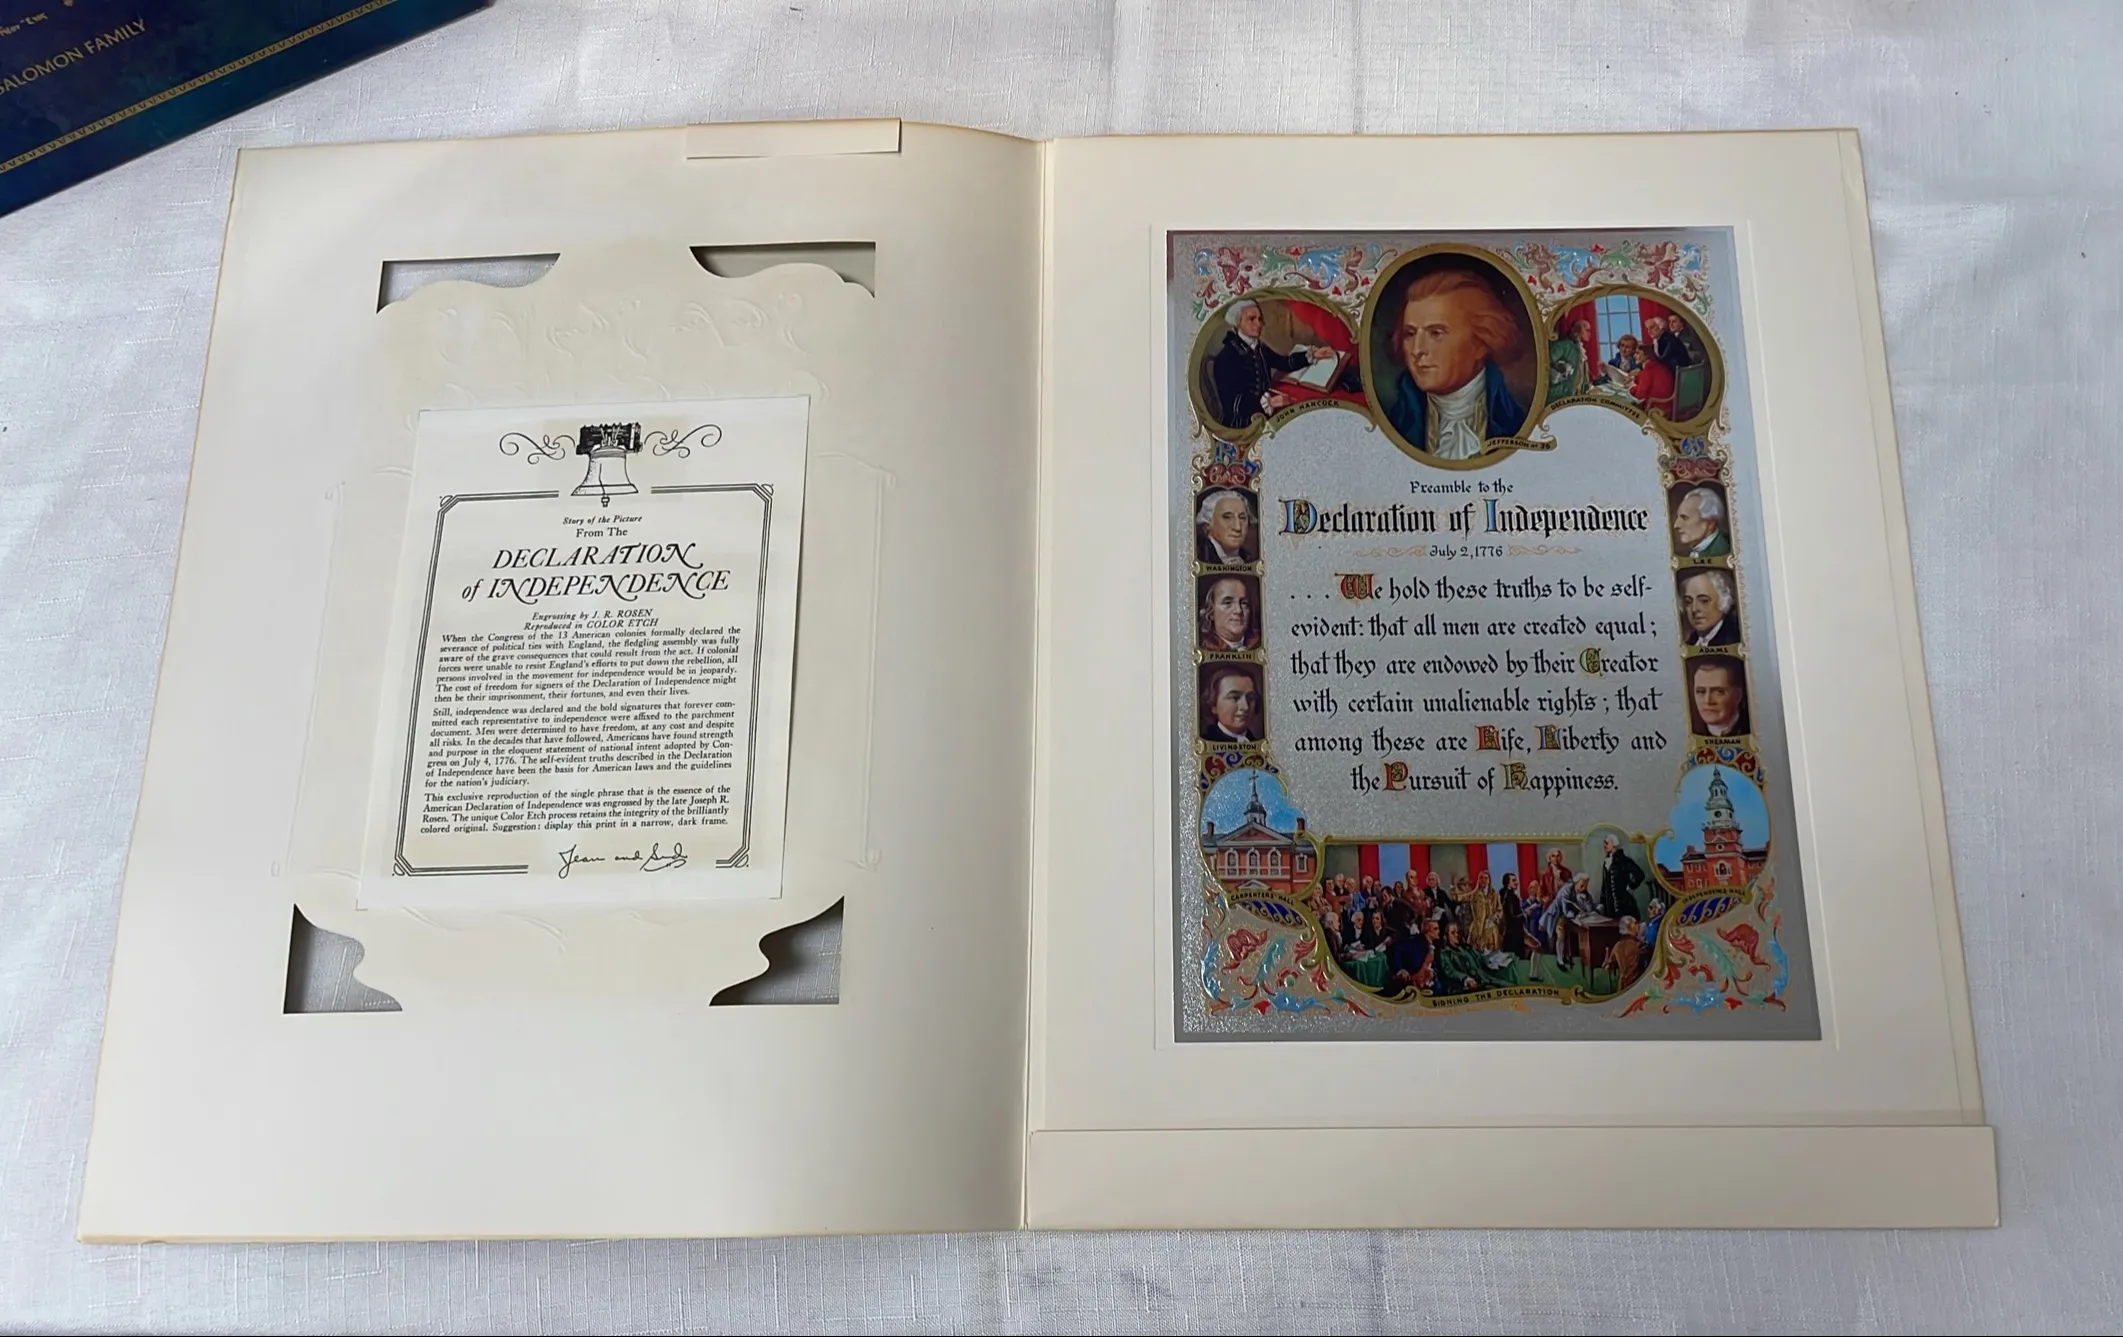 SALOMON FAMILY
Story of the Picture
From The
DECLARATION
of INDEPENDENCE
Engrossing by J. R. ROSEN
Reproduced in COLOR ETCH
When the Congress of the 13 American colonies formally declared the
severance of political ties with England, the fledgling assembly was fully
aware of the grave consequences that could result from the act. If colonial
forces were unable to resist England's efforts to put down the rebellion, all
persons involved in the movement for independence would be in jeopardy.
The cost of freedom for signers of the Declaration of Independence might
then be their imprisonment, their fortunes, and even their lives.
Still, independence was declared and the bold signatures that forever com-
mitted each representative to independence were affixed to the parchment
document. Men were determined to have freedom, at any cost and despite
all risks. In the decades that have followed, Americans have found strength
and purpose in the eloquent statement of national intent adopted by Con-
gress on July 4, 1776. The self-evident truths described in the Declaration
of Independence have been the basis for American laws and the guidelines
for the nation's judiciary.
This exclusive reproduction of the single phrase that is the essence of the
American Declaration of Independence was engrossed by the late Joseph R.
Rosen. The unique Color Etch process retains the integrity of the brilliantly
colored original. Suggestion: display this print in a narrow, dark frame.
Jean and
JOHN HANCOCK
JEFFERSON AT 36
DECLARATION COMMITTEE
Preamble to the
Declaration of Independence
July 2, 1776
. . . We hold these truths to be self-
evident: that all men are created equal;
that they are endowed by their Creator
with certain unalienable rights; that
among these are Life, Liberty and
the Pursuit of Happiness.
WASHINGTON
FRANKLIN
LIVINGSTON
LEE
ADAMS
SHERMAN
CARPENTERS' HALL
INDEPENDENCE HALL
SIGNING THE DECLARATION